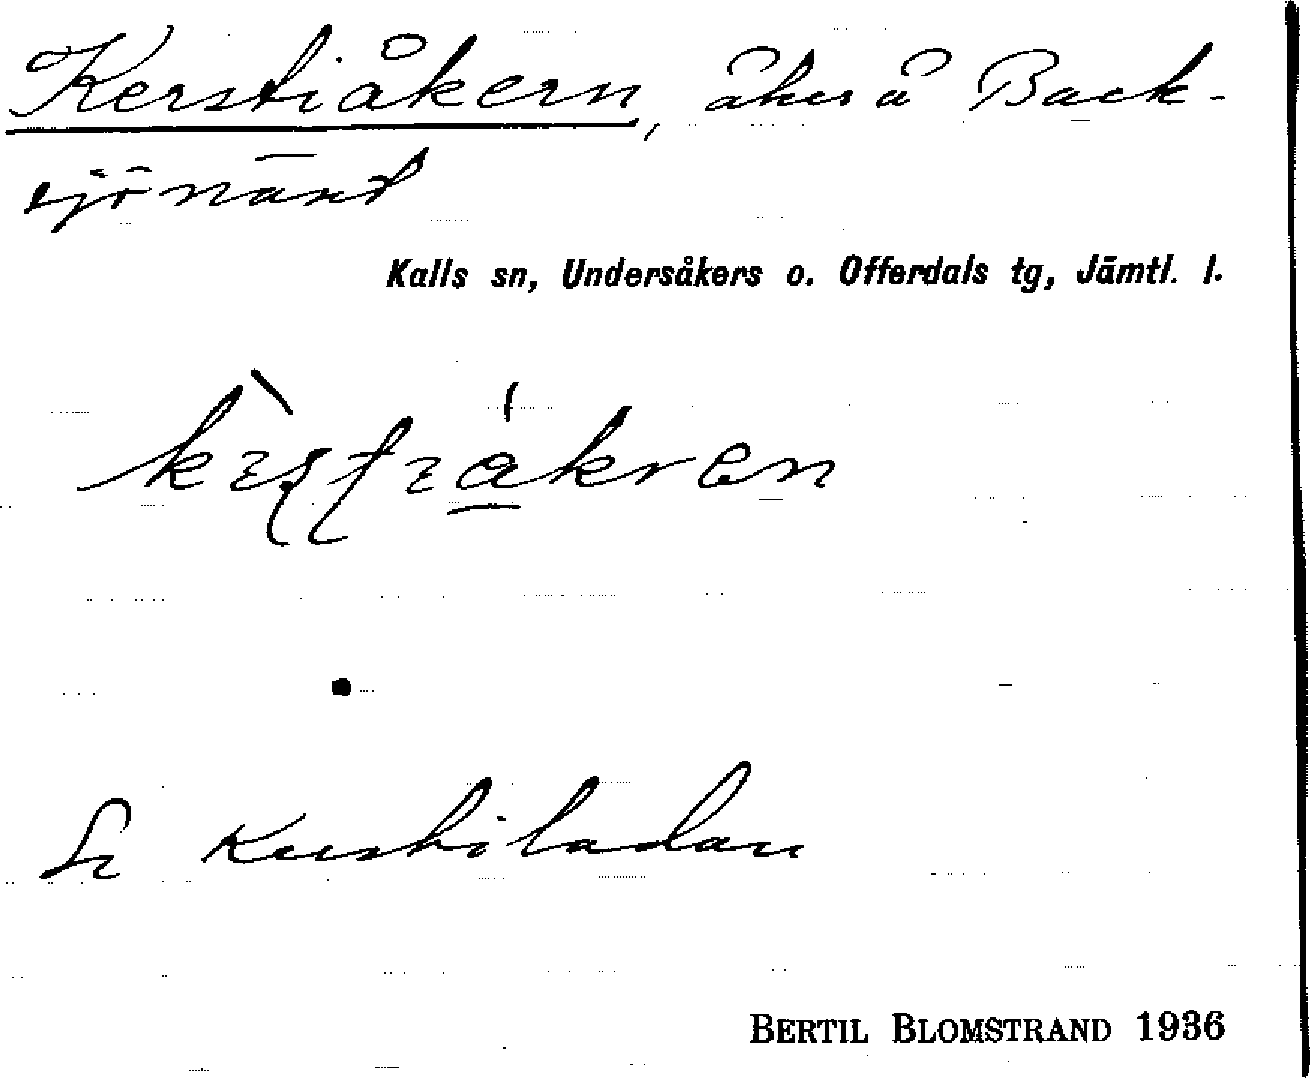 Kerstiåkern, åker å Back-
sjönäset
Kalls sn, Undersåkers o. Offerdals tg, Jämtl. l.
Se Kerstiladan
BERTIL BLOMSTRAND 1936